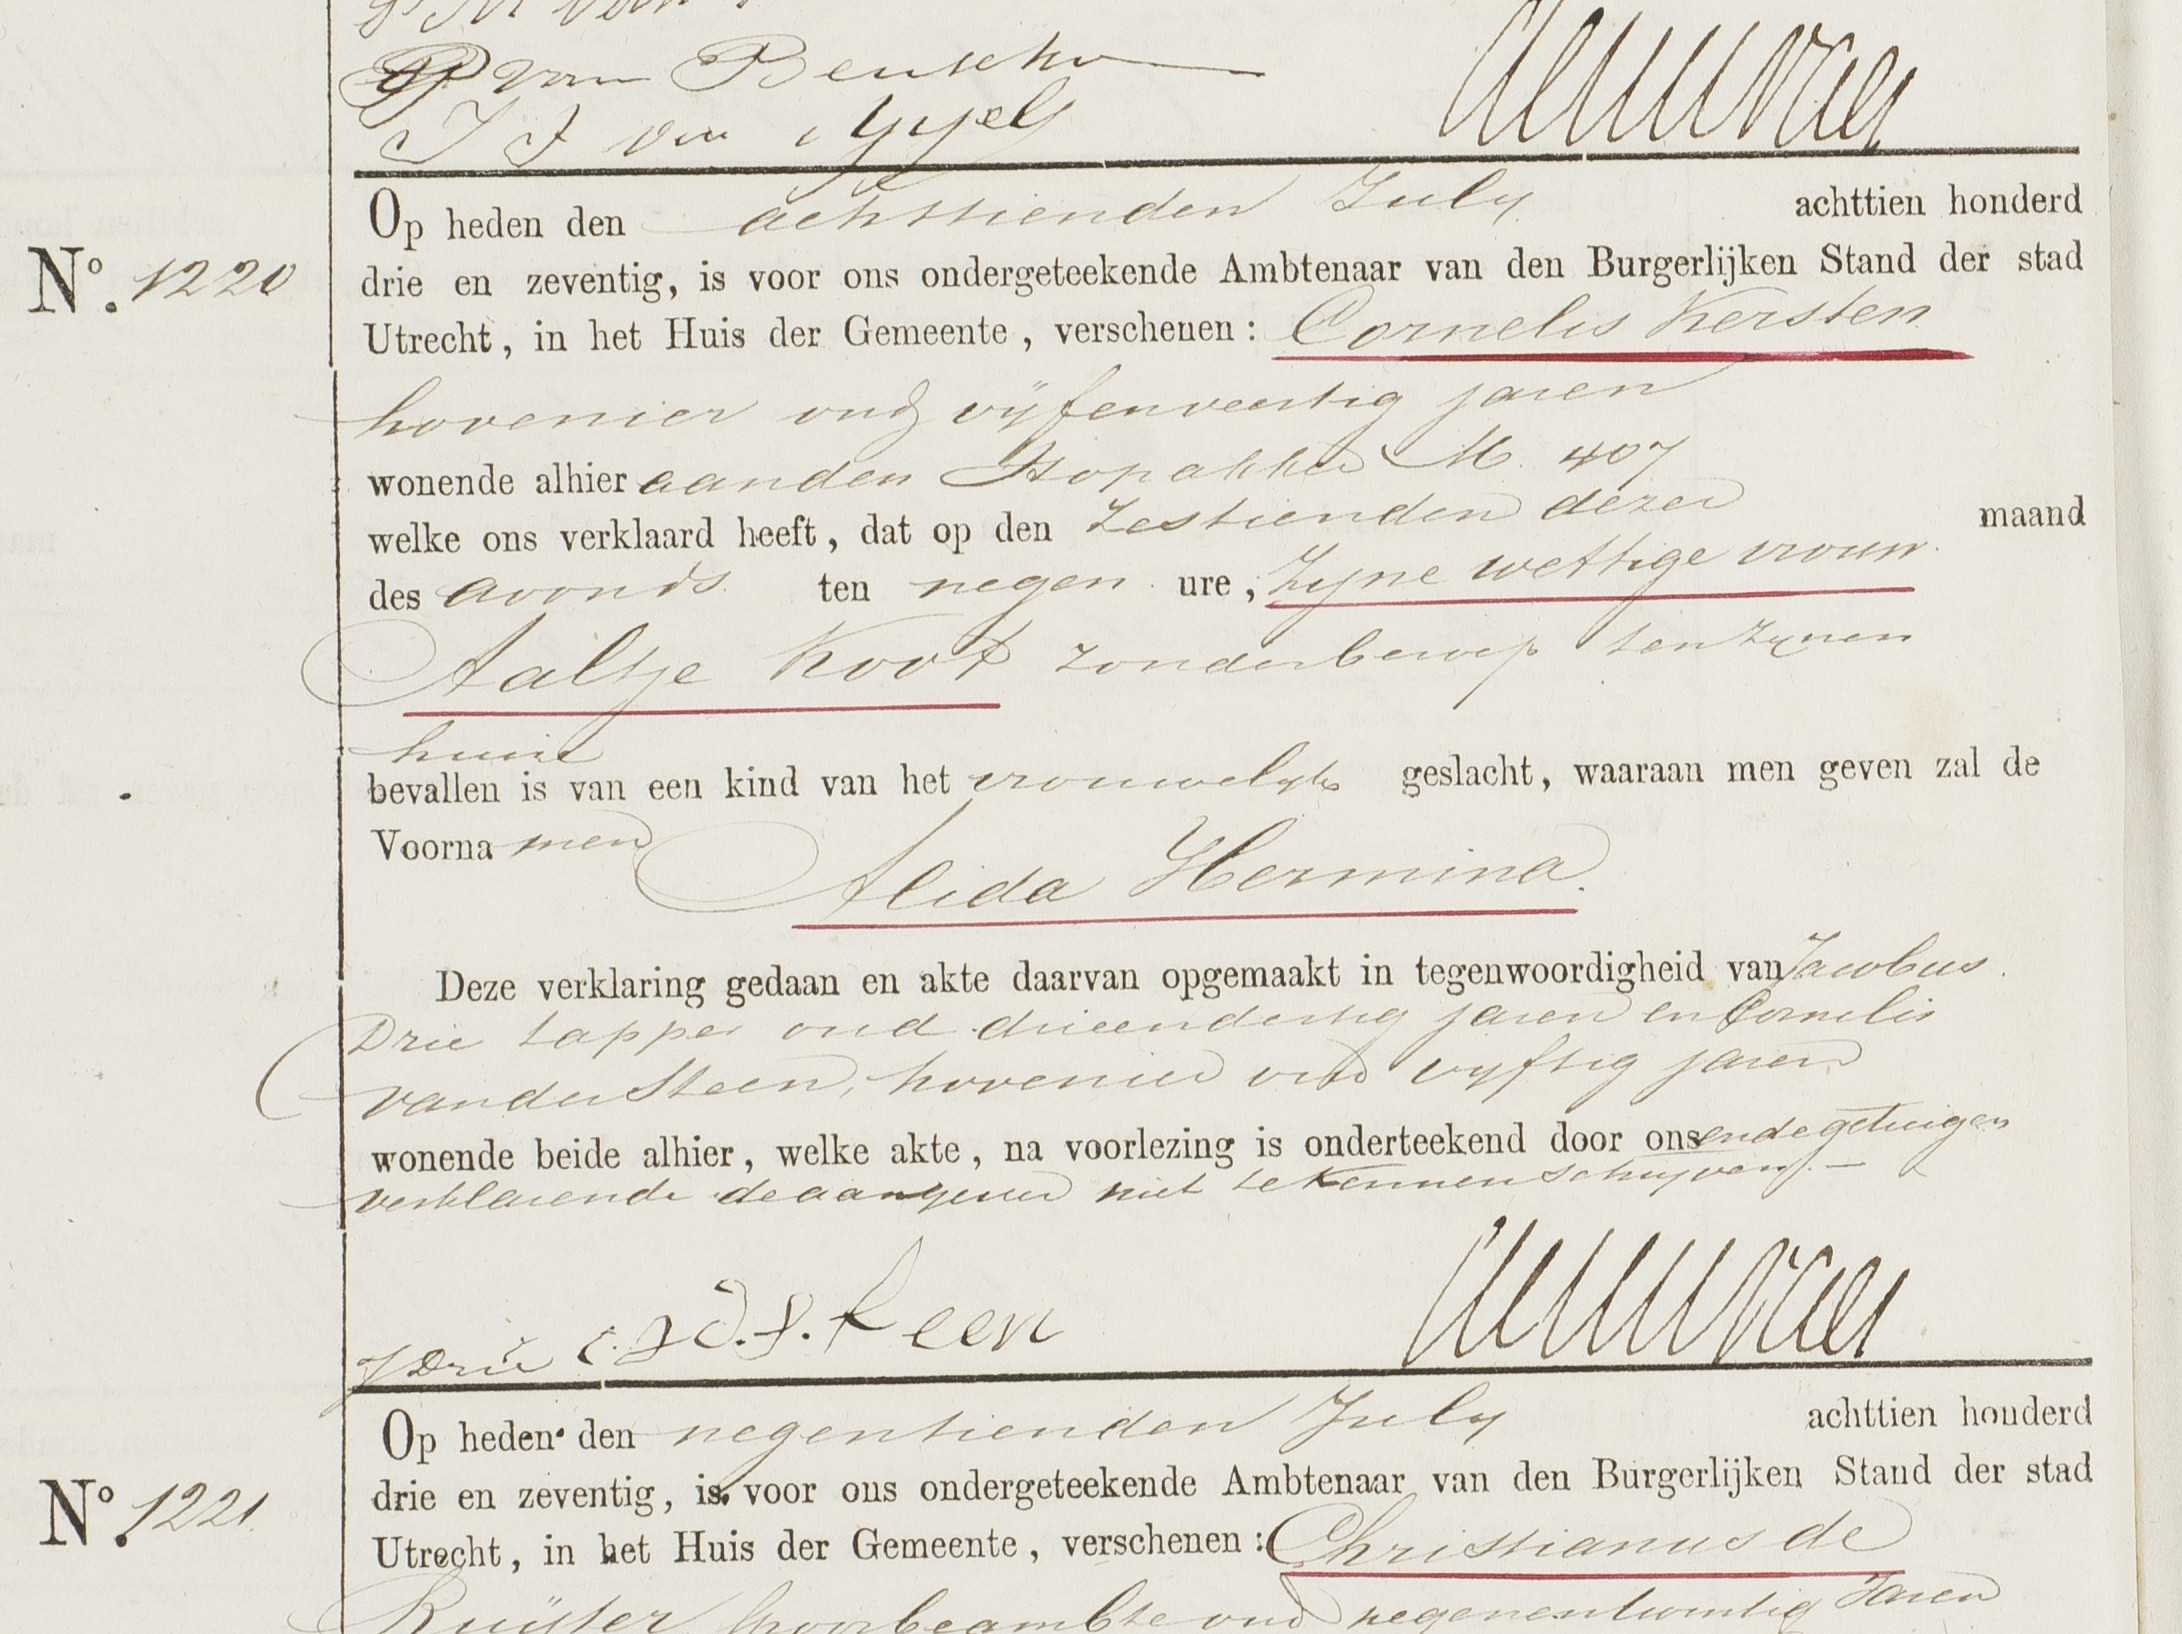 van
Op heden den achttienden July achttien honderd
No. 1220
drie en zeventig, is voor ons ondergeteekende Ambtenaar van den Burgerlijken Stand der stad
Utrecht, in het Huis der Gemeente, verschenen: Cornelis Kersten
hovenier oud vijfenveertig jaren
wonende alhier aanden M. 407
welke ons verklaard heeft, dat op den Zestienden dezer maand
des avonds. ten negen ure, Zyne wettige vrouw
Aaltje Koot zonder beroep ten zynen
huize
bevallen is van een kind van het vrouwelyk geslacht, waaraan men geven zal de
Voornamen Alida Hermina.
Deze verklaring gedaan en akte daarvan opgemaakt in tegenwoordigheid van Jacobus
Drie tapper oud drieendertig jaren en Cornelis
van der Steen, hovenier oud vyftig jaren
wonende beide alhier, welke akte, na voorlezing is onderteekend door ons en de getuigen
verklarende de aangever niet te kennen schryven.—
J Drie Steen
Op heden den negentienden July achttien honderd
No. 1221.
drie en zeventig, is voor ons ondergeteekende Ambtenaar van den Burgerlijken Stand der stad
Utrecht, in het Huis der Gemeente, verschenen: Christianus de
Ruijter spoorbeambte oud negenentwintig Jaren